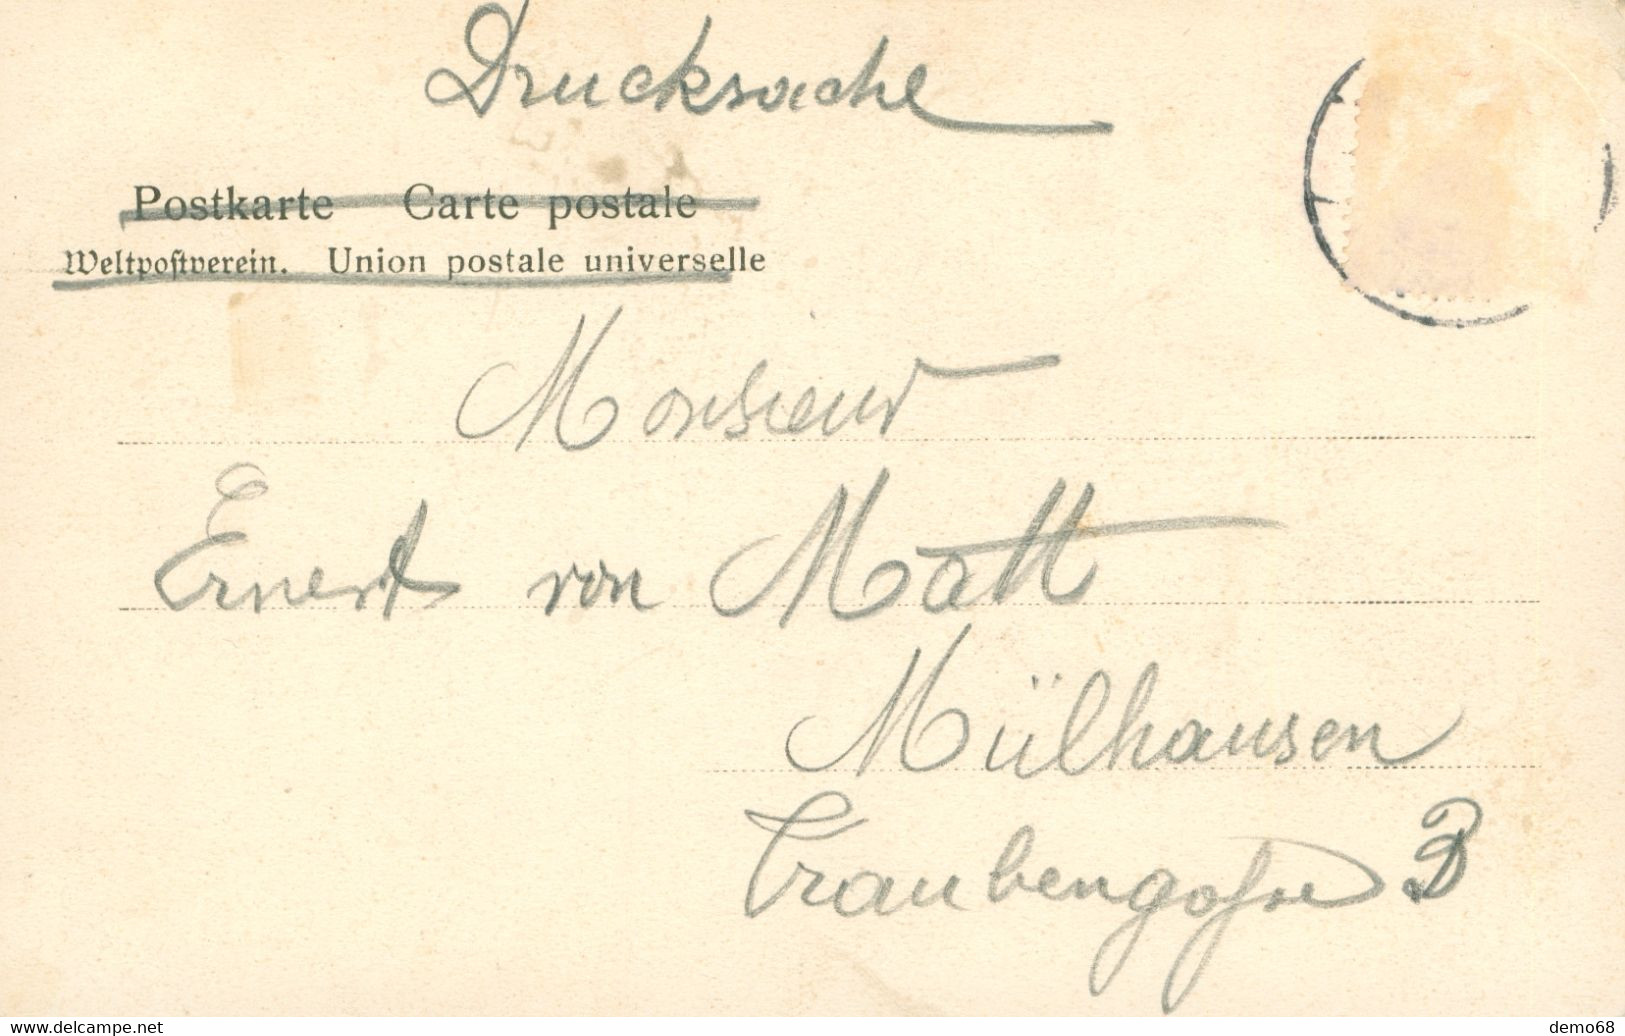 Drucksache
Postkarte Carte postale
Weltpostverein. Union postale universelle
Monsieur
Ernest von Matt
Mülhausen
Traubengasse
www.delcampe.net
demo68